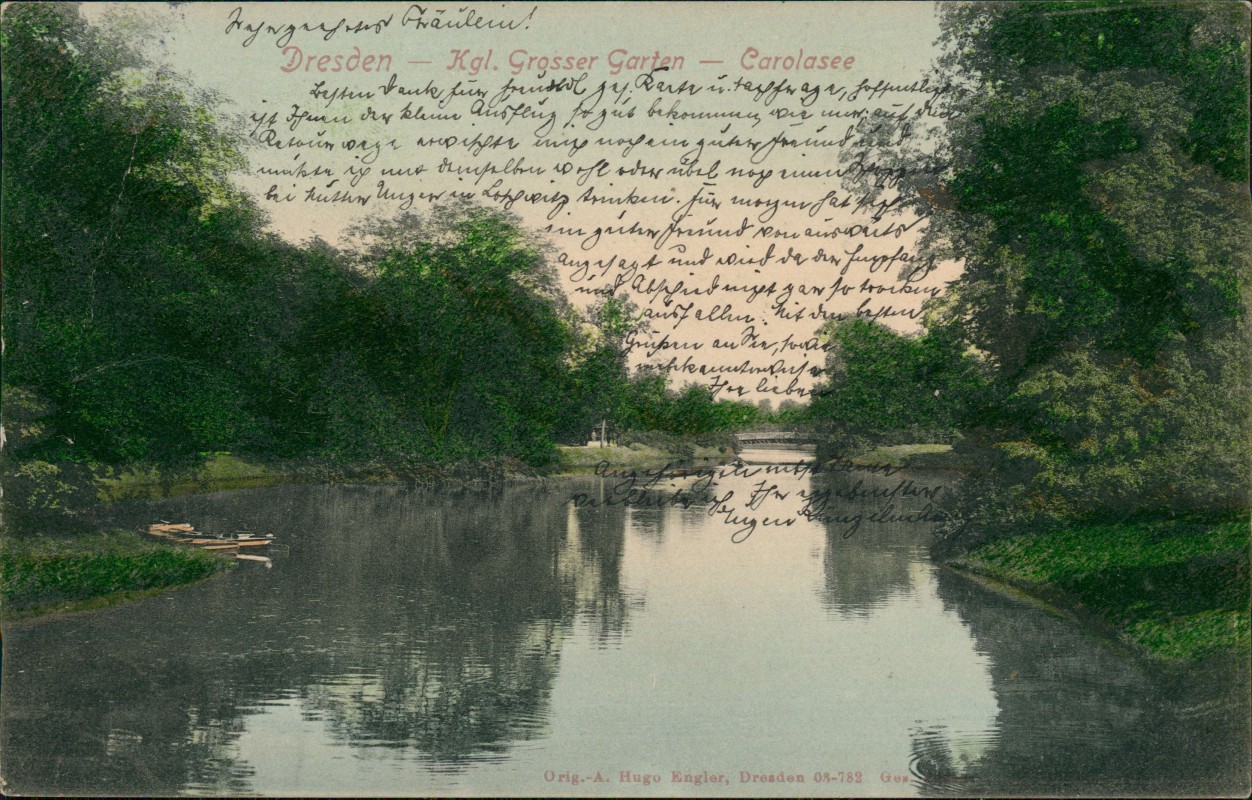 Sehr geehrtes Fräulein!
Dresden — Kgl. Grosser Garten — Carolasee
Besten Dank für freundl. ges. Karte u. Nachfrage, hoffentlich
ist Ihnen der kleine Ausflug so gut bekommen, wie mir, auf dem
Retourwege erwischte mich noch ein guter Freund und
mußte ich mit demselben wohl oder übel noch einen Schoppen
bei Mutter Unger in Loschwitz trinken. Für morgen hat sich
ein guter Freund von auswärts
angesagt und wird da der Empfang
und Abschied nicht gar so trocken
ausfallen. Mit den besten
Grüßen an Sie, sowie
unbekannterweise
Ihre lieben
Angehörigen
verbleibe ich Ihr ergebenster
Eugen
Orig.-A. Hugo Engler, Dresden 03-782 Ges.